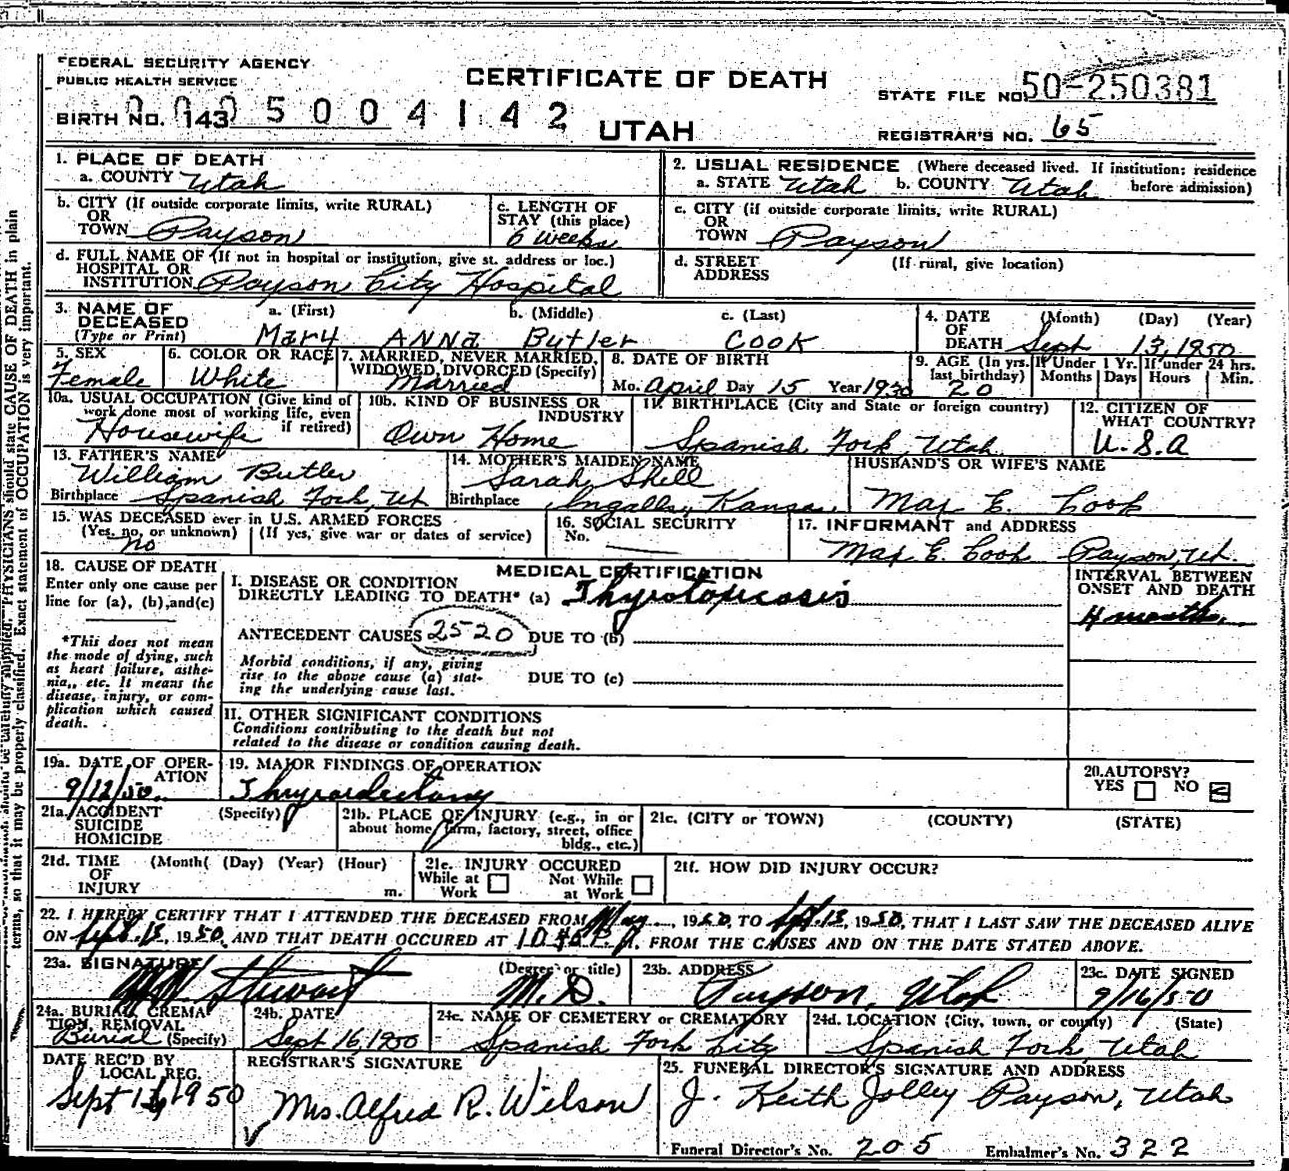 FEDERAL SECURITY AGENCY
PUBLIC HEALTH SERVICE
CERTIFICATE OF DEATH
STATE FILE NO. 50-250381
BIRTH NO. 143 5 0 0 4 1 4 2
UTAH
REGISTRAR'S NO. 65
1. PLACE OF DEATH
a. COUNTY Utah
2. USUAL RESIDENCE (Where deceased lived. If institution: residence before admission)
a. STATE Utah b. COUNTY Utah
b. CITY (If outside corporate limits, write RURAL)
OR
TOWN Payson
c. LENGTH OF
STAY (this place)
6 weeks
c. CITY (if outside corporate limits, write RURAL)
OR
TOWN Payson
d. FULL NAME OF (If not in hospital or institution, give st. address or loc.)
HOSPITAL OR
INSTITUTION Payson City Hospital
d. STREET
ADDRESS
(If rural, give location)
3. NAME OF
DECEASED
(Type or Print)
a. (First) b. (Middle) c. (Last)
Mary ANNA Butler COOK
4. DATE
OF
DEATH
(Month) (Day) (Year)
Sept 13, 1950
5. SEX
Female
6. COLOR OR RACE
White
7. MARRIED, NEVER MARRIED,
WIDOWED, DIVORCED (Specify)
Married
8. DATE OF BIRTH
Mo. April Day 15 Year 1930
9. AGE (In yrs. last birthday)
20
If Under 1 Yr.
Months Days
If under 24 hrs.
Hours Min.
10a. USUAL OCCUPATION (Give kind of
work done most of working life, even
if retired)
Housewife
10b. KIND OF BUSINESS OR
INDUSTRY
Own Home
11. BIRTHPLACE (City and State or foreign country)
Spanish Fork, Utah
12. CITIZEN OF
WHAT COUNTRY?
U.S.A
13. FATHER'S NAME
William Butler
Birthplace Spanish Fork, Ut
14. MOTHER'S MAIDEN NAME
Sarah Shell
Birthplace Ingalls, Kansas
HUSBAND'S OR WIFE'S NAME
Max E. Cook
15. WAS DECEASED ever in U.S. ARMED FORCES
(Yes, no, or unknown) (If yes, give war or dates of service)
no
16. SOCIAL SECURITY
No.
17. INFORMANT and ADDRESS
Max E. Cook Payson, Ut.
18. CAUSE OF DEATH
Enter only one cause per
line for (a), (b), and (c)
*This does not mean
the mode of dying, such
as heart failure, asthe-
nia, etc. It means the
disease, injury, or com-
plication which caused
death.
MEDICAL CERTIFICATION
I. DISEASE OR CONDITION
DIRECTLY LEADING TO DEATH* (a) Thyrotoxicosis
ANTECEDENT CAUSES 2520 DUE TO (b)
Morbid conditions, if any, giving
rise to the above cause (a) stat-
ing the underlying cause last.
DUE TO (c)
INTERVAL BETWEEN
ONSET AND DEATH
4 months
II. OTHER SIGNIFICANT CONDITIONS
Conditions contributing to the death but not
related to the disease or condition causing death.
19a. DATE OF OPER-
ATION
9/12/50
19. MAJOR FINDINGS OF OPERATION
Thyroidectomy
20. AUTOPSY?
YES NO
21a. ACCIDENT
SUICIDE
HOMICIDE
(Specify)
21b. PLACE OF INJURY (e.g., in or
about home, farm, factory, street, office
bldg., etc.)
21c. (CITY or TOWN) (COUNTY) (STATE)
21d. TIME
OF
INJURY
(Month) (Day) (Year) (Hour)
m.
21e. INJURY OCCURED
While at
Work
Not While
at Work
21f. HOW DID INJURY OCCUR?
22. I HEREBY CERTIFY THAT I ATTENDED THE DECEASED FROM May, 1950, TO Sept. 13, 1950, THAT I LAST SAW THE DECEASED ALIVE
ON Sept. 13, 1950, AND THAT DEATH OCCURED AT 10 40 P.M. FROM THE CAUSES AND ON THE DATE STATED ABOVE.
23a. SIGNATURE (Degree or title)
Stewart M.D.
23b. ADDRESS
Payson, Utah
23c. DATE SIGNED
9/16/50
24a. BURIAL, CREMA-
TION, REMOVAL
Burial (Specify)
24b. DATE
Sept 16, 1950
24c. NAME OF CEMETERY or CREMATORY
Spanish Fork City
24d. LOCATION (City, town, or county) (State)
Spanish Fork, Utah
DATE REC'D BY
LOCAL REG.
Sept 1950
REGISTRAR'S SIGNATURE
Mrs. Alfred R. Wilson
25. FUNERAL DIRECTOR'S SIGNATURE AND ADDRESS
J. Keith Jolley Payson, Utah
Funeral Director's No. 205 Embalmer's No. 322
PHYSICIANS should state CAUSE OF DEATH in plain
terms, so that it may be properly classified. Exact statement of OCCUPATION is very important.